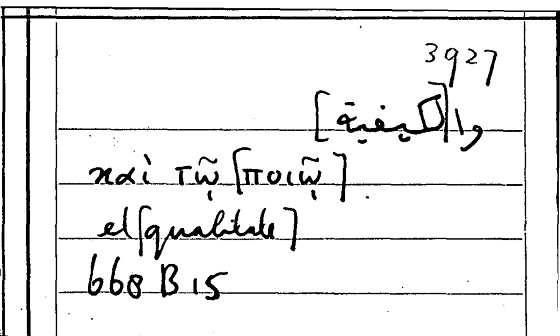 3927
وا[لكيفية]
καὶ τῷ [ποιῷ]
et [qualitate]
668 B 15